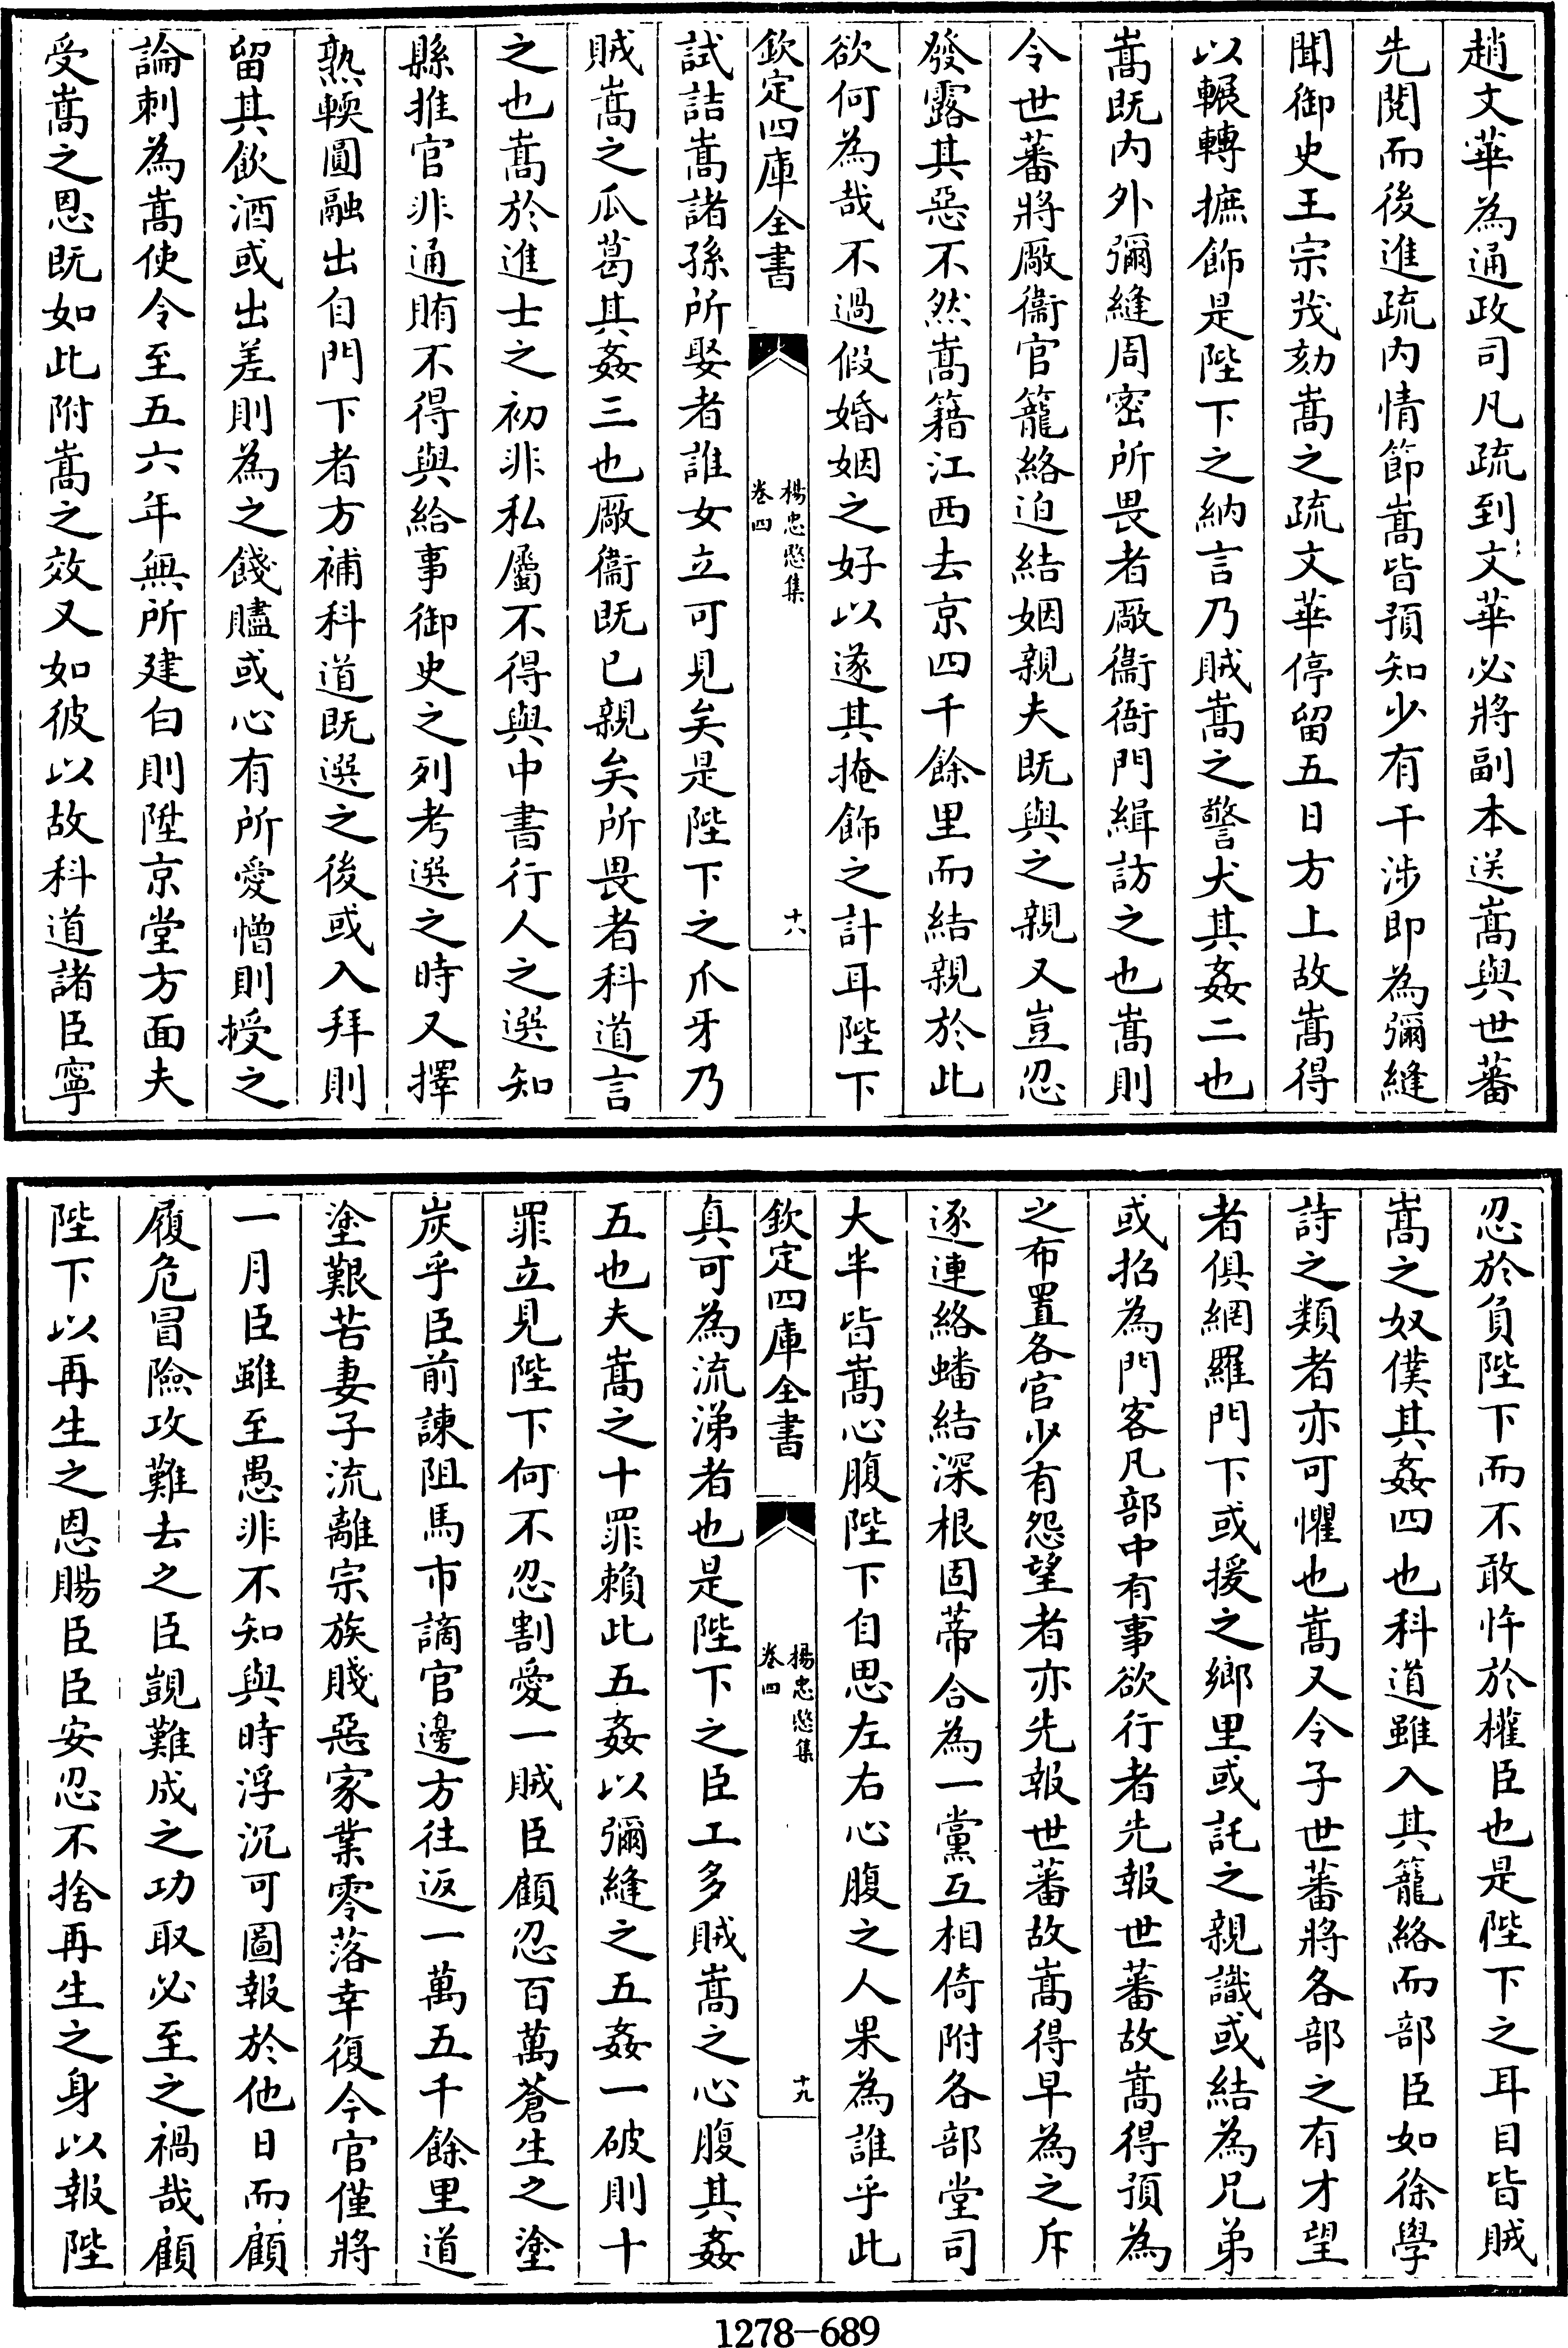 趙文華為通政司凡疏到文華必將副本送嵩與世蕃
先閱而後進疏内情節嵩皆預知少有干涉即為彌縫
聞御史王宗茂劾嵩之疏文華停留五日方上故嵩得
以輾轉摭飾是陛下之納言乃賊嵩之警犬其姦二也
嵩既内外彌縫周密所畏者廠衞衙門緝訪之也嵩則
令世蕃將廠衞官籠絡迫結姻親夫既與之親又豈忍
發露其惡不然嵩籍江西去京四千餘里而結親於此
欲何為哉不過假婚姻之好以遂其掩飾之計耳陛下
欽定四庫全書
楊忠愍集
卷四
十八
試詰嵩諸孫所娶者誰女立可見矣是陛下之爪牙乃
賊嵩之瓜葛其姦三也廠衞既已親矣所畏者科道言
之也嵩於進士之初非私屬不得與中書行人之選知
縣推官非通賄不得與給事御史之列考選之時又擇
熟輭圓融出自門下者方補科道既選之後或入拜則
留其飲酒或出差則為之餞贐或心有所愛憎則授之
論刺為嵩使令至五六年無所建白則陞京堂方面夫
受嵩之恩既如此附嵩之效又如彼以故科道諸臣寧
忍於負陛下而不敢忤於權臣也是陛下之耳目皆賊
嵩之奴僕其姦四也科道雖入其籠絡而部臣如徐學
詩之類者亦可懼也嵩又令子世蕃將各部之有才望
者俱網羅門下或援之鄉里或託之親識或結為兄弟
或招為門客凡部中有事欲行者先報世蕃故嵩得預為
之布置各官少有怨望者亦先報世蕃故嵩得早為之斥
逐連絡蟠結深根固蒂合為一黨互相倚附各部堂司
大半皆嵩心腹陛下自思左右心腹之人果為誰乎此
欽定四庫全書
楊忠愍集
卷四
十九
真可為流涕者也是陛下之臣工多賊嵩之心腹其姦
五也夫嵩之十罪賴此五姦以彌縫之五姦一破則十
罪立見陛下何不忍割愛一賊臣顧忍百萬蒼生之塗
炭乎臣前諫阻馬市謫官邊方往返一萬五千餘里道
塗艱苦妻子流離宗族賤惡家業零落幸復今官僅將
一月臣雖至愚非不知與時浮沉可圖報於他日而顧
履危冒險攻難去之臣覬難成之功取必至之禍哉顧
陛下以再生之恩賜臣臣安忍不捨再生之身以報陛
1278-689